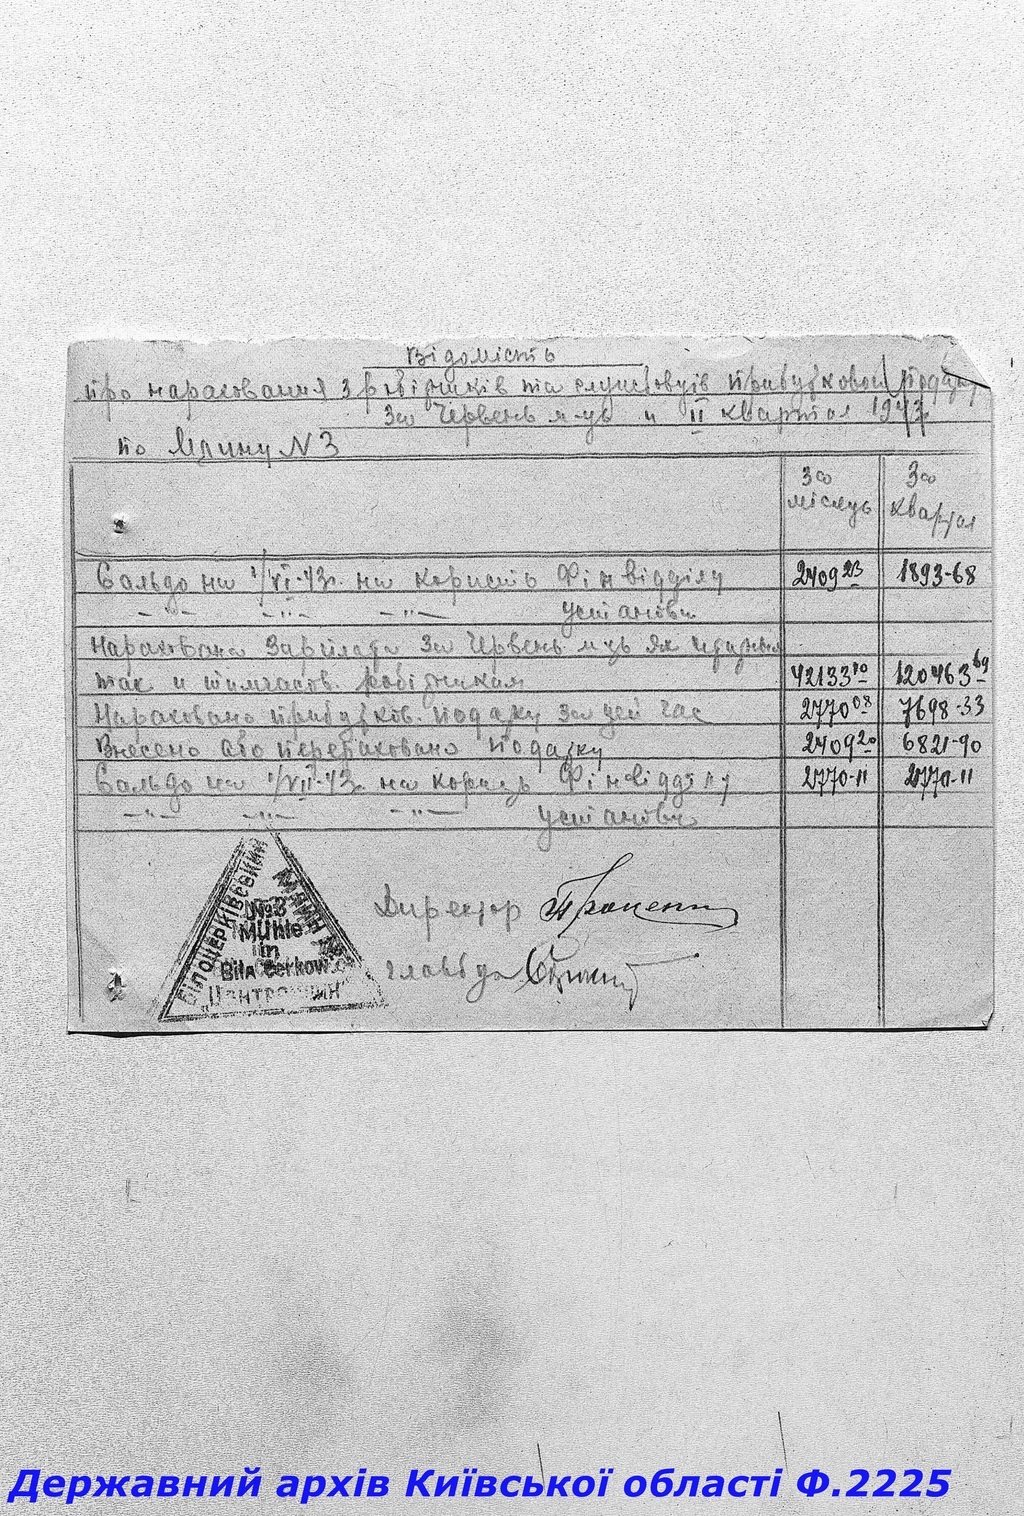 Відомість
про нараховання з робітників та службовців прибуткового податку
За Червень м-ць и II квартал 1943 р.
по Млину N 3
За місяць
За квартал
Сальдо на 1/VI-43р. на користь Фінвідділу 2409 23 1893-68
-"- -"- -"- установи
Нарахована Зарплата За Червень м-ць як
так и тимчасов. робітникам 42133 10 120463 69
Нараховано прибутков. податку за цей час 2770 08 7698-33
Внесено або перераховано податку 2409 20 6821-90
Сальдо на 1/VII-43р. на користь Фінвідділу 2770-11 2770-11
-"- -"- -"- установи
БІЛОЦЕРКІВСЬКИЙ
МЛИН №3
№3
Mühle
in
Bila Cerkow
"Центромлин"
Директор
главбух
Державний архів Київської області Ф.2225